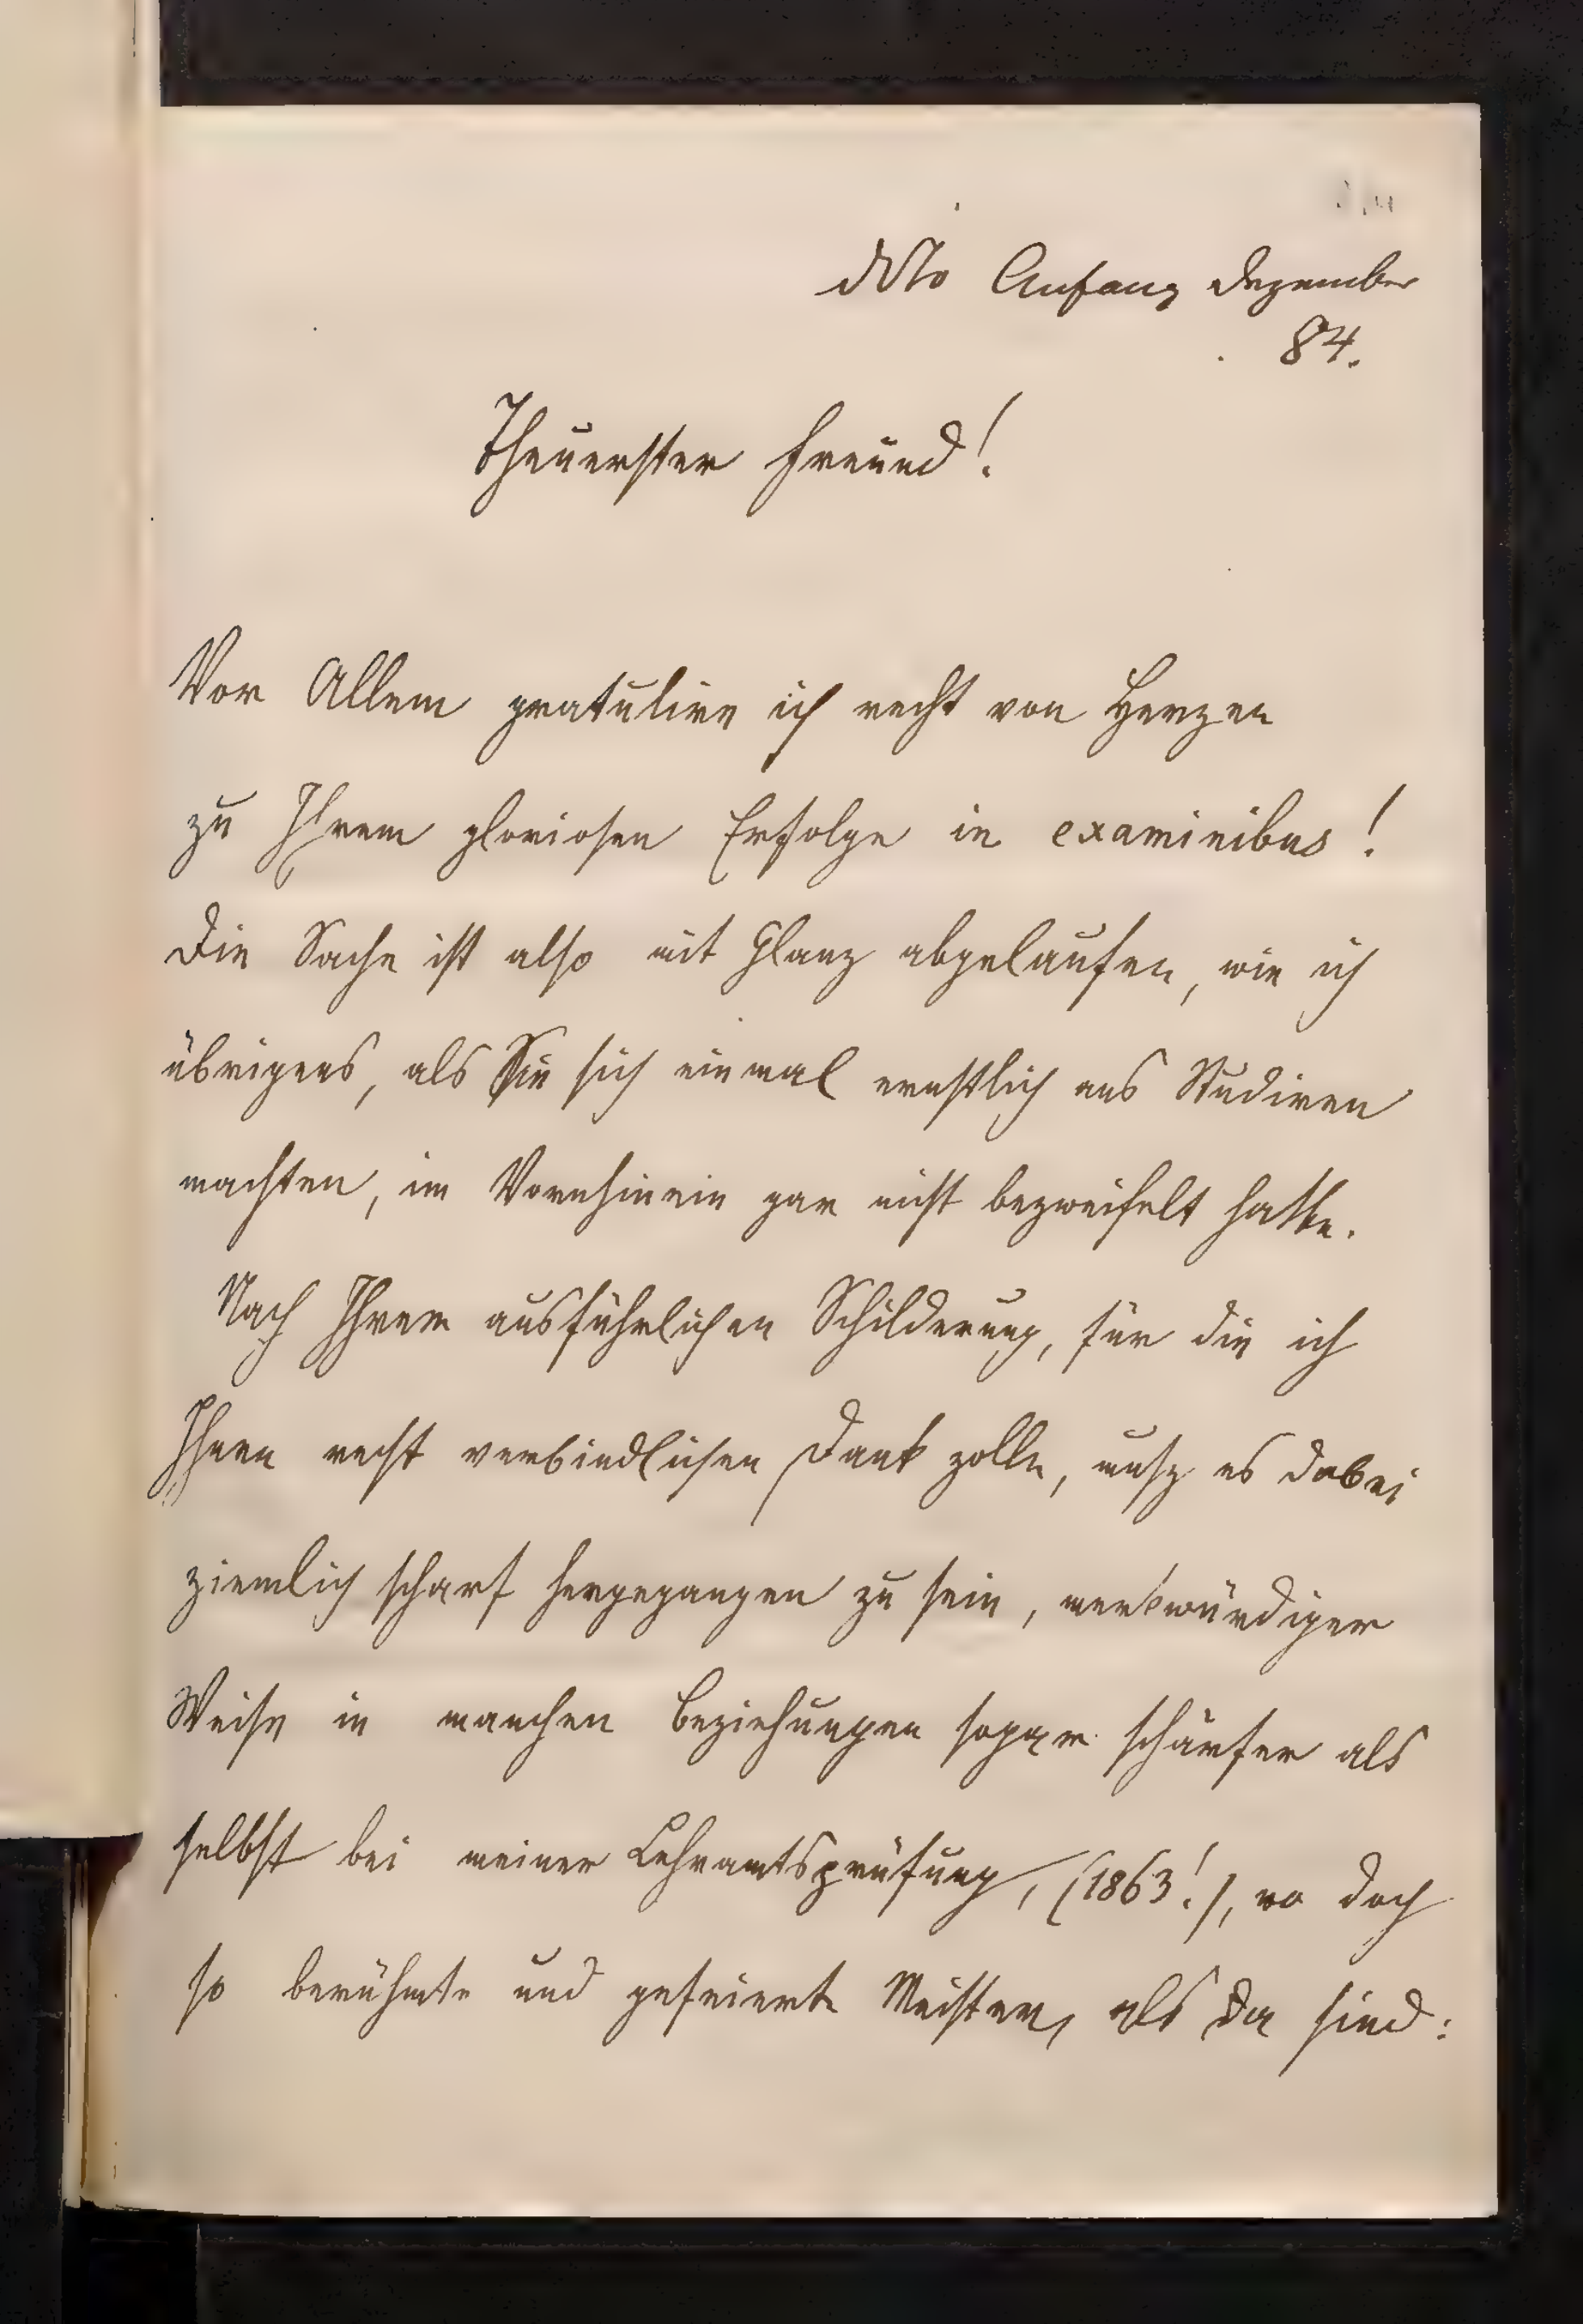 ddto Anfang Dezember
84.
Theuerster Freund!
Vor Allem gratulire ich recht von Herzen
zu Ihrem gloriosen Erfolge in examinibus!
Die Sache ist also mit Glanz abgelaufen, wie ich
übrigens, als Sie sich einmal ernstlich ans Studiren
machten, im Vornhinein gar nicht bezweifelt hatte.
Nach Ihrer ausführlichen Schilderung, für die ich
Ihnen recht verbindlichen Dank zolle, musz es dabei
ziemlich scharf hergegangen zu sein, merkwürdiger
Weise in manchen Beziehungen sogar schärfer als
selbst bei meiner Lehramtsprüfung, (1863!), wo doch
so berühmte und gefeierte Meister, als da sind: